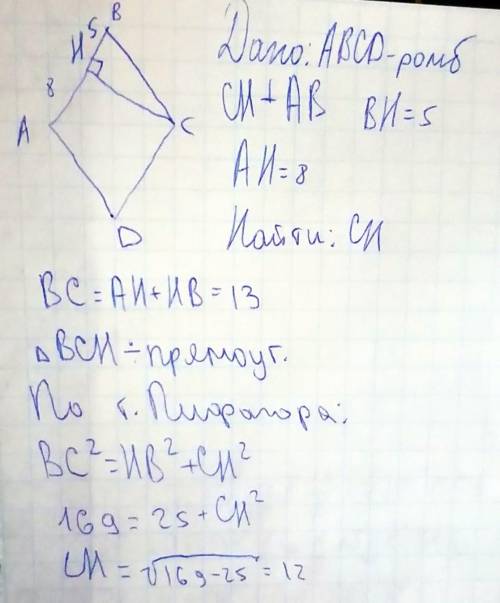 B
5
H
8
A
C
D
Дано: ABCD-ромб
CH⊥AB BH=5
AH=8
Найти: CH
BC=AH+HB=13
△BCH-прямоуг.
По т. Пифагора:
BC²=HB²+CH²
169=25+CH²
CH=√169-25=12